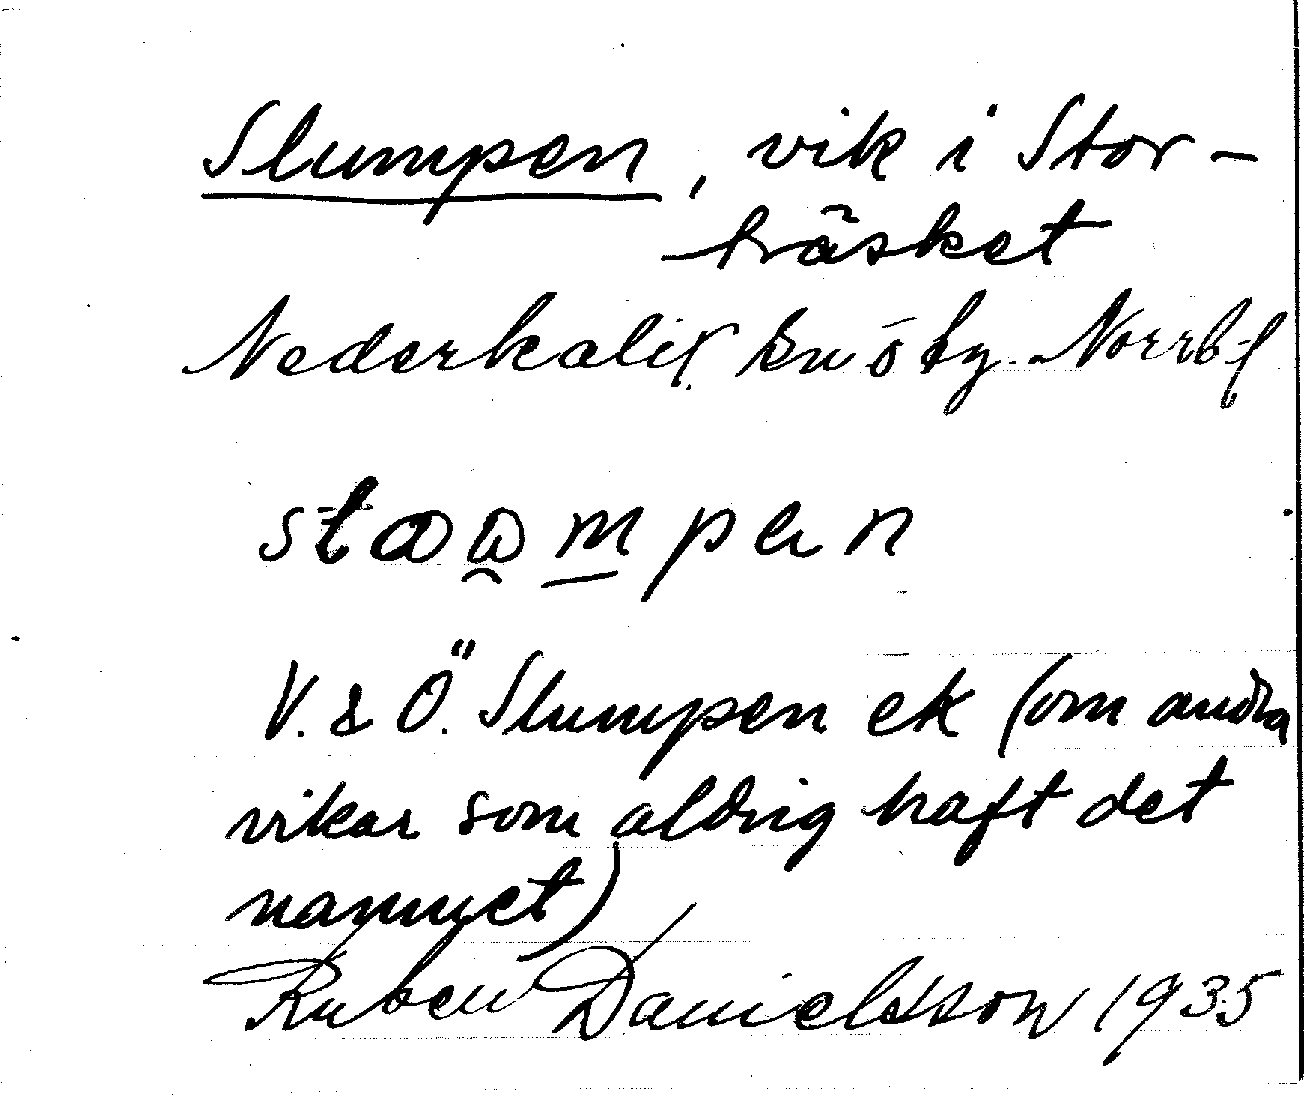 Slumpen, vik i Stor-
träsket
Nederkalix sn ö by Norrb-l
V. & Ö. Slumpen ek (om andra
vikar som aldrig haft det
namnet)
Ruben Danielsson 1935